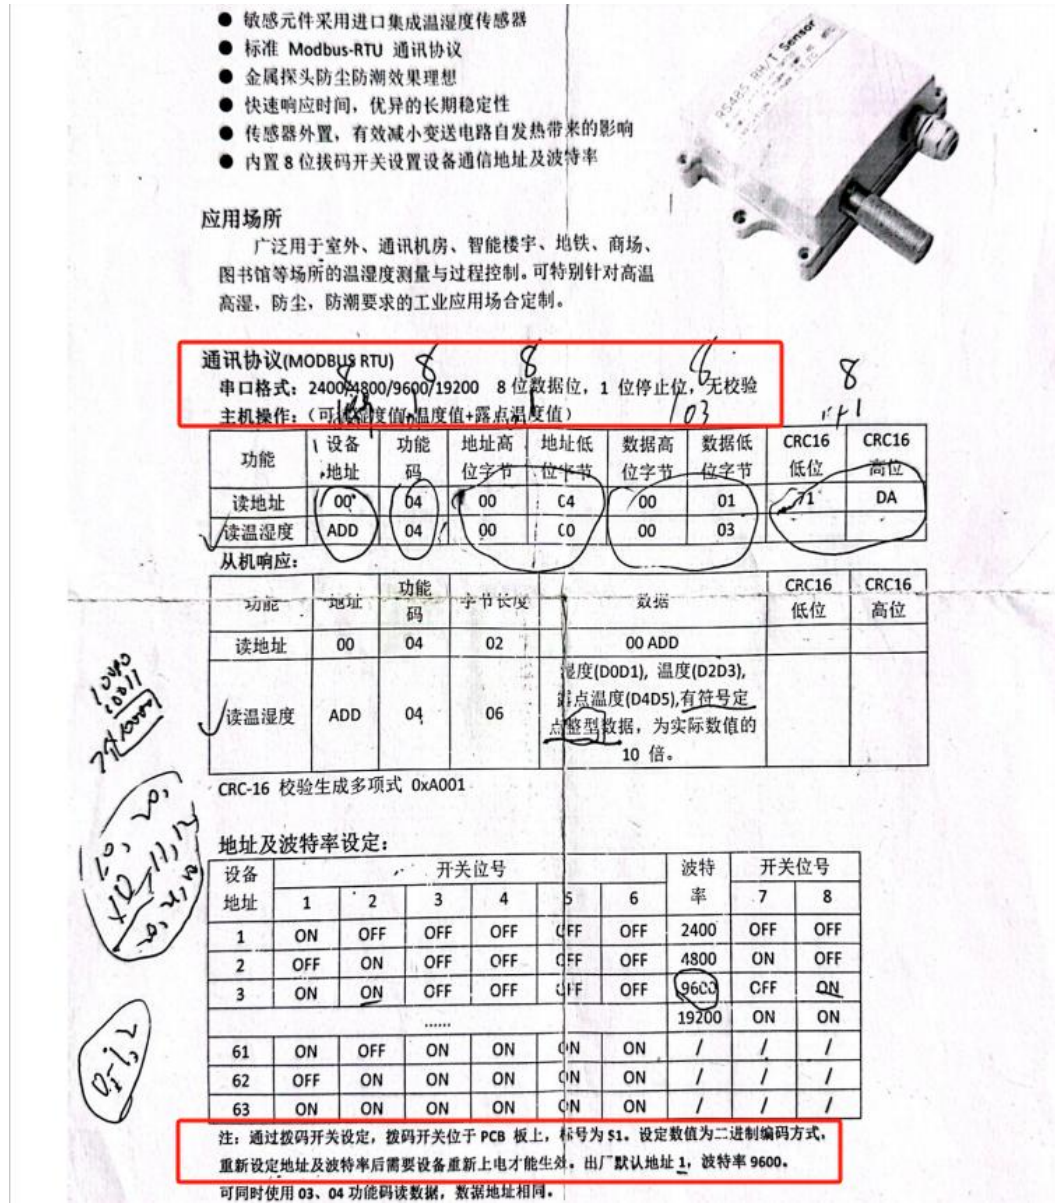 ● 敏感元件采用进口集成温湿度传感器
● 标准 Modbus-RTU 通讯协议
● 金属探头防尘防潮效果理想
● 快速响应时间，优异的长期稳定性
● 传感器外置，有效减小变送电路自发热带来的影响
● 内置 8 位拔码开关设置设备通信地址及波特率
RS485 RH/T Sensor
应用场所
广泛用于室外、通讯机房、智能楼宇、地铁、商场、
图书馆等场所的温湿度测量与过程控制。可特别针对高温
高湿、防尘，防潮要求的工业应用场合定制。
通讯协议(MODBUS RTU)
8 8 8 8
串口格式：2400/4800/9600/19200 8 位数据位，1 位停止位，无校验
主机操作：（可读湿度值+温度值+露点温度值） 103
功能 设备地址 功能码 地址高位字节 地址低位字节 数据高位字节 数据低位字节 CRC16低位 CRC16高位
读地址 00 04 00 C4 00 01 71 DA
读温湿度 ADD 04 00 C0 00 03
从机响应：
功能 地址 功能码 字节长度 数据 CRC16低位 CRC16高位
读地址 00 04 02 00 ADD
读温湿度 ADD 04 06 湿度(D0D1), 温度(D2D3),
露点温度(D4D5),有符号定
点整型数据，为实际数值的
10 倍。
CRC-16 校验生成多项式 0xA001
地址及波特率设定：
设备地址 开关位号 波特率 开关位号
1 2 3 4 5 6 7 8
1 ON OFF OFF OFF OFF OFF 2400 OFF OFF
2 OFF ON OFF OFF OFF OFF 4800 ON OFF
3 ON ON OFF OFF OFF OFF 9600 OFF ON
…… 19200 ON ON
61 ON OFF ON ON ON ON / / /
62 OFF ON ON ON ON ON / / /
63 ON ON ON ON ON ON / / /
注：通过拨码开关设定，拨码开关位于 PCB 板上，标号为 S1。设定数值为二进制编码方式，
重新设定地址及波特率后需要设备重新上电才能生效，出厂默认地址 1，波特率 9600。
可同时使用 03、04 功能码读数据，数据地址相同。